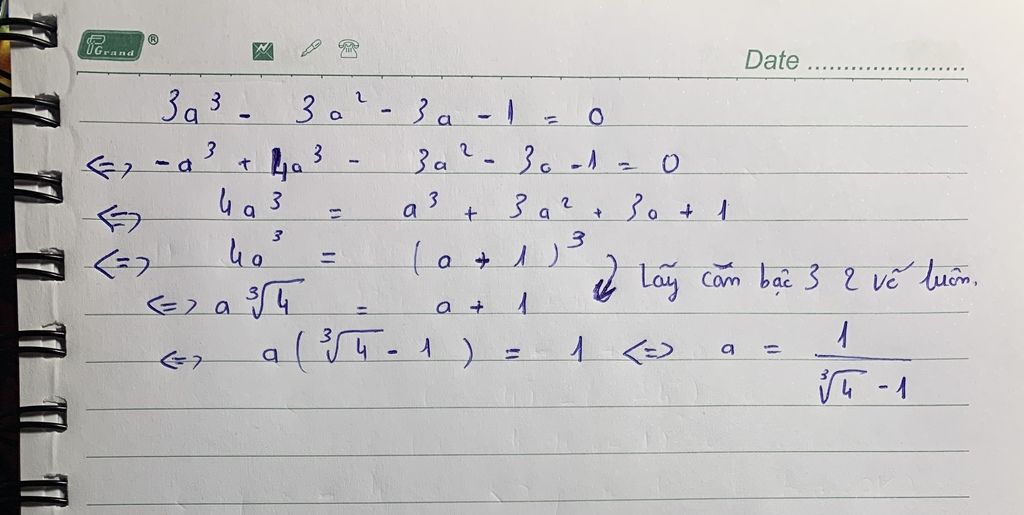 Grand ®
Date ......................
3a³ - 3a² - 3a - 1 = 0
<=> -a³ + 4a³ - 3a² - 3a - 1 = 0
<=> 4a³ = a³ + 3a² + 3a + 1
<=> 4a³ = (a + 1)³
Lấy căn bậc 3 2 vế luôn.
<=> a∛4 = a + 1
<=> a(∛4 - 1) = 1 <=> a = 1/(∛4 - 1)